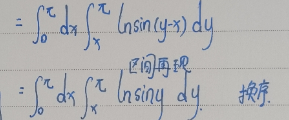 = ∫₀^π dx ∫ₓ^π ln sin(y-x) dy
区间再现
= ∫₀^π dx ∫ₓ^π ln sin y dy. 换序.